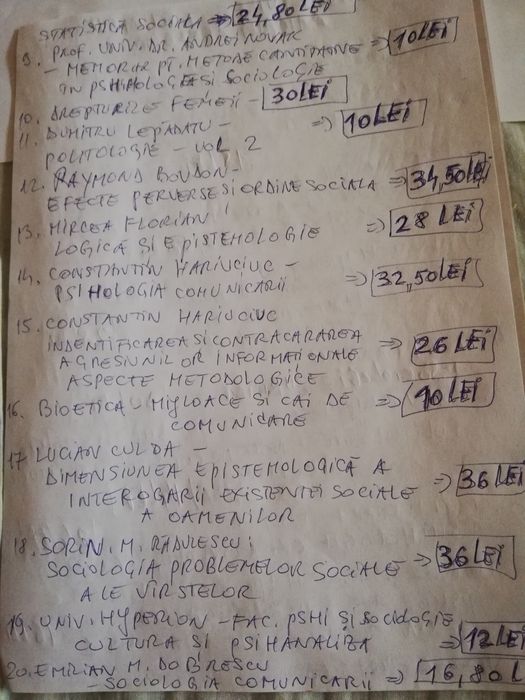 STATISTICĂ SOCIALA => 24,80 LEI
9. PROF. UNIV. DR. ANDREI NOVAK
- MEMORAR PT. METODE CANTITATIVE => 10 LEI
IN PSHIHOLOGEA SI SOCIOLOGIE
10. DREPTURILE FEMEII - 30 LEI
11. DUMITRU LEPĂDATU - => 10 LEI
POLITOLOGIE - VOL. 2
12. RAYMOND BOUDON -
EFECTE PERVERSE SI ORDINE SOCIALA => 34,50 LEI
13. MIRCEA FLORIAN
LOGICĂ ȘI EPISTEMOLOGIE => 28 LEI
14. CONSTANTIN HARIUCIUC -
PSIHOLOGIA COMUNICARII => 32,50 LEI
15. CONSTANTIN HARIUCIUC
INDENTIFICAREA SI CONTRACARAREA
AGRESIUNILOR INFORMATIONALE => 26 LEI
ASPECTE METODOLOGICE
16. BIOETICA - MIJLOACE SI CAI DE => 10 LEI
COMUNICARE
17. LUCIAN CULDA -
DIMENSIUNEA EPISTEMOLOGICĂ A
INTEROGARII EXISTENTEI SOCIALE => 36 LEI
A OAMENILOR
18. SORIN. M. RADULESCU:
SOCIOLOGIA PROBLEMELOR SOCIALE => 36 LEI
ALE VIRSTELOR
19. UNIV. HYPERION - FAC. PSHI ȘI SOCIOLOGIE
CULTURA SI PSIHANALIZA => 12 LEI
20. EMILIAN M. DOBRESCU
- SOCIOLOGIA COMUNICARII => 16,80 L